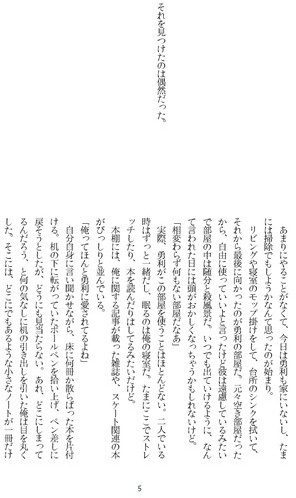 それを見つけたのは偶然だった。
あまりにやることがなくて、今日は勇利も家にいないし、たま
には掃除でもしようかなんて思ったのが始まり。
リビングや寝室のモップ掛けをして、台所のシンクを拭いて、
それから最後に向かったのが勇利の部屋だった。元々空き部屋だった
から、自由に使っていいよと言ったけど彼は遠慮しているみたい
で部屋の中は随分と殺風景だ。いつでも出ていけるように、なん
て言われた日には頭がおかしくなっちゃうかもしれないけど。
「相変わらず何もない部屋だなあ」
実際、勇利がこの部屋を使うことはほとんどない。二人でいる
時はずっと一緒だし、眠るのは俺の寝室だ。たまにここでストレ
ッチしたり、本を読んだりはしてるみたいだけど。
本棚には、俺に関する記事が載った雑誌や、スケート関連の本
がびっしりと並んでいる。
「俺ってほんと勇利に愛されてるよね」
自分自身に言い聞かせながら、床に何冊か散らばった本を片付
ける。机の下に転がっていたボールペンを拾い上げ、ペン差しに
戻そうとしたが、どうにも見当たらない。あれ、どこにしまって
るんだろう、と何の気なしに机の引き出しを引いた俺は目を丸く
した。そこには、どこにでもあるような小さなノートが一冊だけ
5